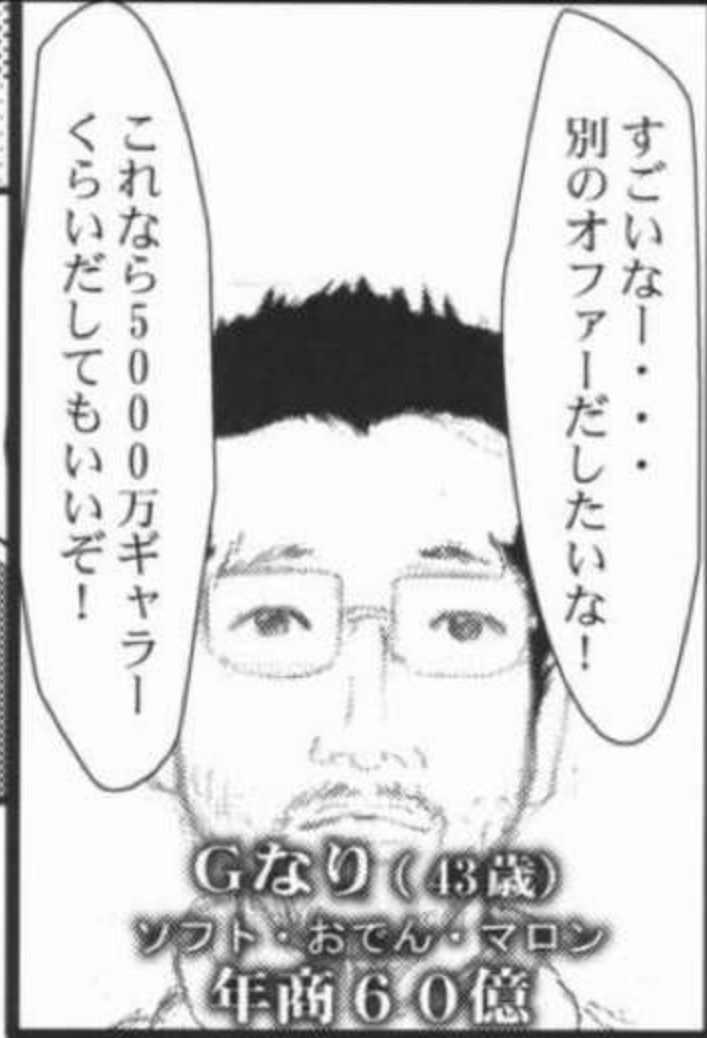 すごいなー・・・
別のオファーだしたいな！
これなら5000万ギャラー
くらいだしてもいいぞ！
Gなり（43歳）
ソフト・おでん・マロン
年商６０億